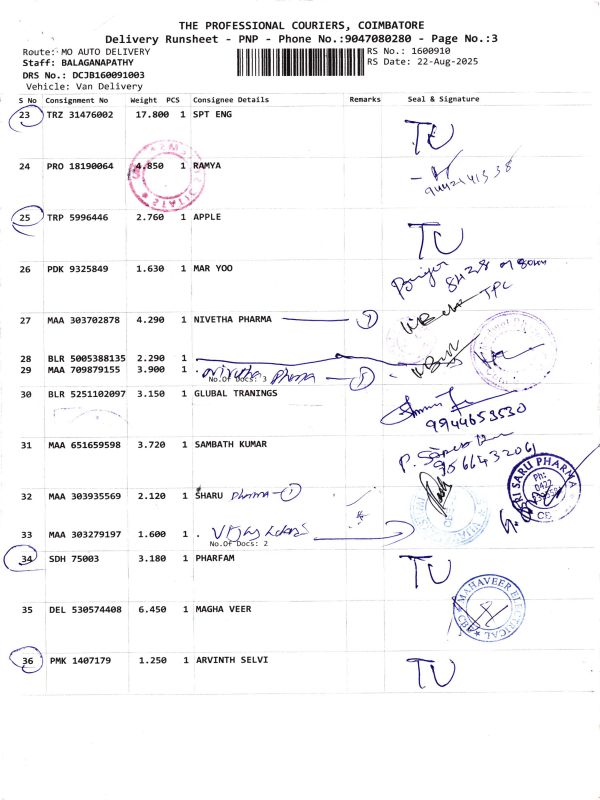 THE PROFESSIONAL COURIERS, COIMBATORE
Delivery Runsheet - PNP - Phone No.:9047080280 - Page No.:3
Route: MO AUTO DELIVERY RS No.: 1600910
Staff: BALAGANAPATHY RS Date: 22-Aug-2025
DRS No.: DCJB160091003
Vehicle: Van Delivery
S No Consignment No Weight PCS Consignee Details Remarks Seal & Signature
23 TRZ 31476002 17.800 1 SPT ENG TU
24 PRO 18190064 4.850 1 RAMYA
25 TRP 5996446 2.760 1 APPLE TU
26 PDK 9325849 1.630 1 MAR YOO
TPC
27 MAA 303702878 4.290 1 NIVETHA PHARMA 1
28 BLR 5005388135 2.290 1 .
29 MAA 709879155 3.900 1 . Pharma
No.Of Docs: 3
30 BLR 5251102097 3.150 1 GLUBAL TRANINGS
9944653530
31 MAA 651659598 3.720 1 SAMBATH KUMAR
9566432061
32 MAA 303935569 2.120 1 SHARU Pharma - 1
SRI SARU PHARMA
Ph:
0422
CBE
33 MAA 303279197 1.600 1 .
No.Of Docs: 2
34 SDH 75003 3.180 1 PHARFAM TU
35 DEL 530574408 6.450 1 MAGHA VEER
MAHAVEER ELECTRICAL
36 PMK 1407179 1.250 1 ARVINTH SELVI TU